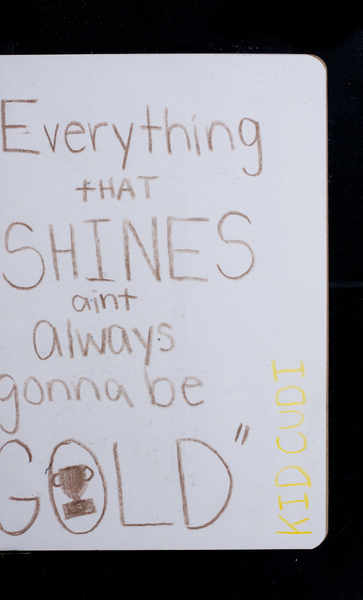 Everything
tHAT
SHINES
aint
always
gonna be
GOLD"
KID CUDI